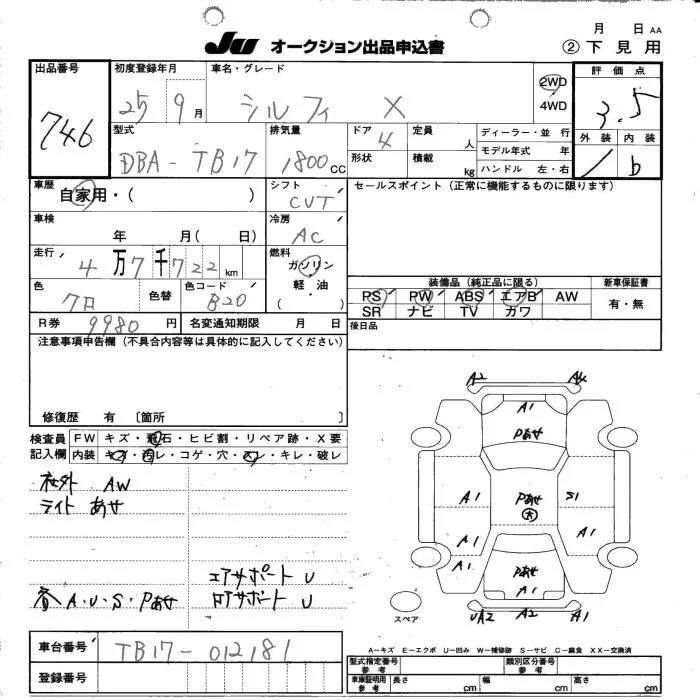 月 日 AA
Ju オークション出品申込書 ② 下見用
出品番号 初度登録年月 車名・グレード 評価点
746 25 9月 シルフィ X 2WD 4WD 3.5
型式 排気量 ドア 定員 ディーラー・並行 外装 内装
DBA-TB17 1800cc 4 人 モデル年式 年 b
形状 積載 kg ハンドル 左・右
車歴 自家用・( ) シフト CVT セールスポイント (正常に機能するものに限ります)
車検 年 月( 日) 冷房 AC
走行 4万7千722km 燃料 ガソリン 軽油・( )
色 クロ 色替 色コード B20
装備品 (純正品に限る) 新車保証書
PS PW ABS エアB AW 有・無
SR ナビ TV カワ
R券 9980円 名変通知期限 月 日 後日品
注意事項申告欄 (不具合内容等は具体的に記入してください)
修復歴 有 〔箇所 〕
検査員 FW キズ・飛石・ヒビ割・リペア跡・X要
記入欄 内装 キズ・汚レ・コゲ・穴・スレ・キレ・破レ
社外 AW
ライト あせ
エアサポート U
A・U・S・Pあせ ロアサポート U
A2 A4
A1
Pあせ
A1 Pあせ S1
A1 A1
A1 Pあせ
A1
スペア UA2 A2 A1
A-キズ E-エクボ U-凹み W-補修跡 S-サビ C-腐食 XX-交換済
車台番号 TB17-012181
登録番号
型式指定番号 参考 類別区分番号 参考
車庫証明用 参考 長さ cm 幅 cm 高さ cm